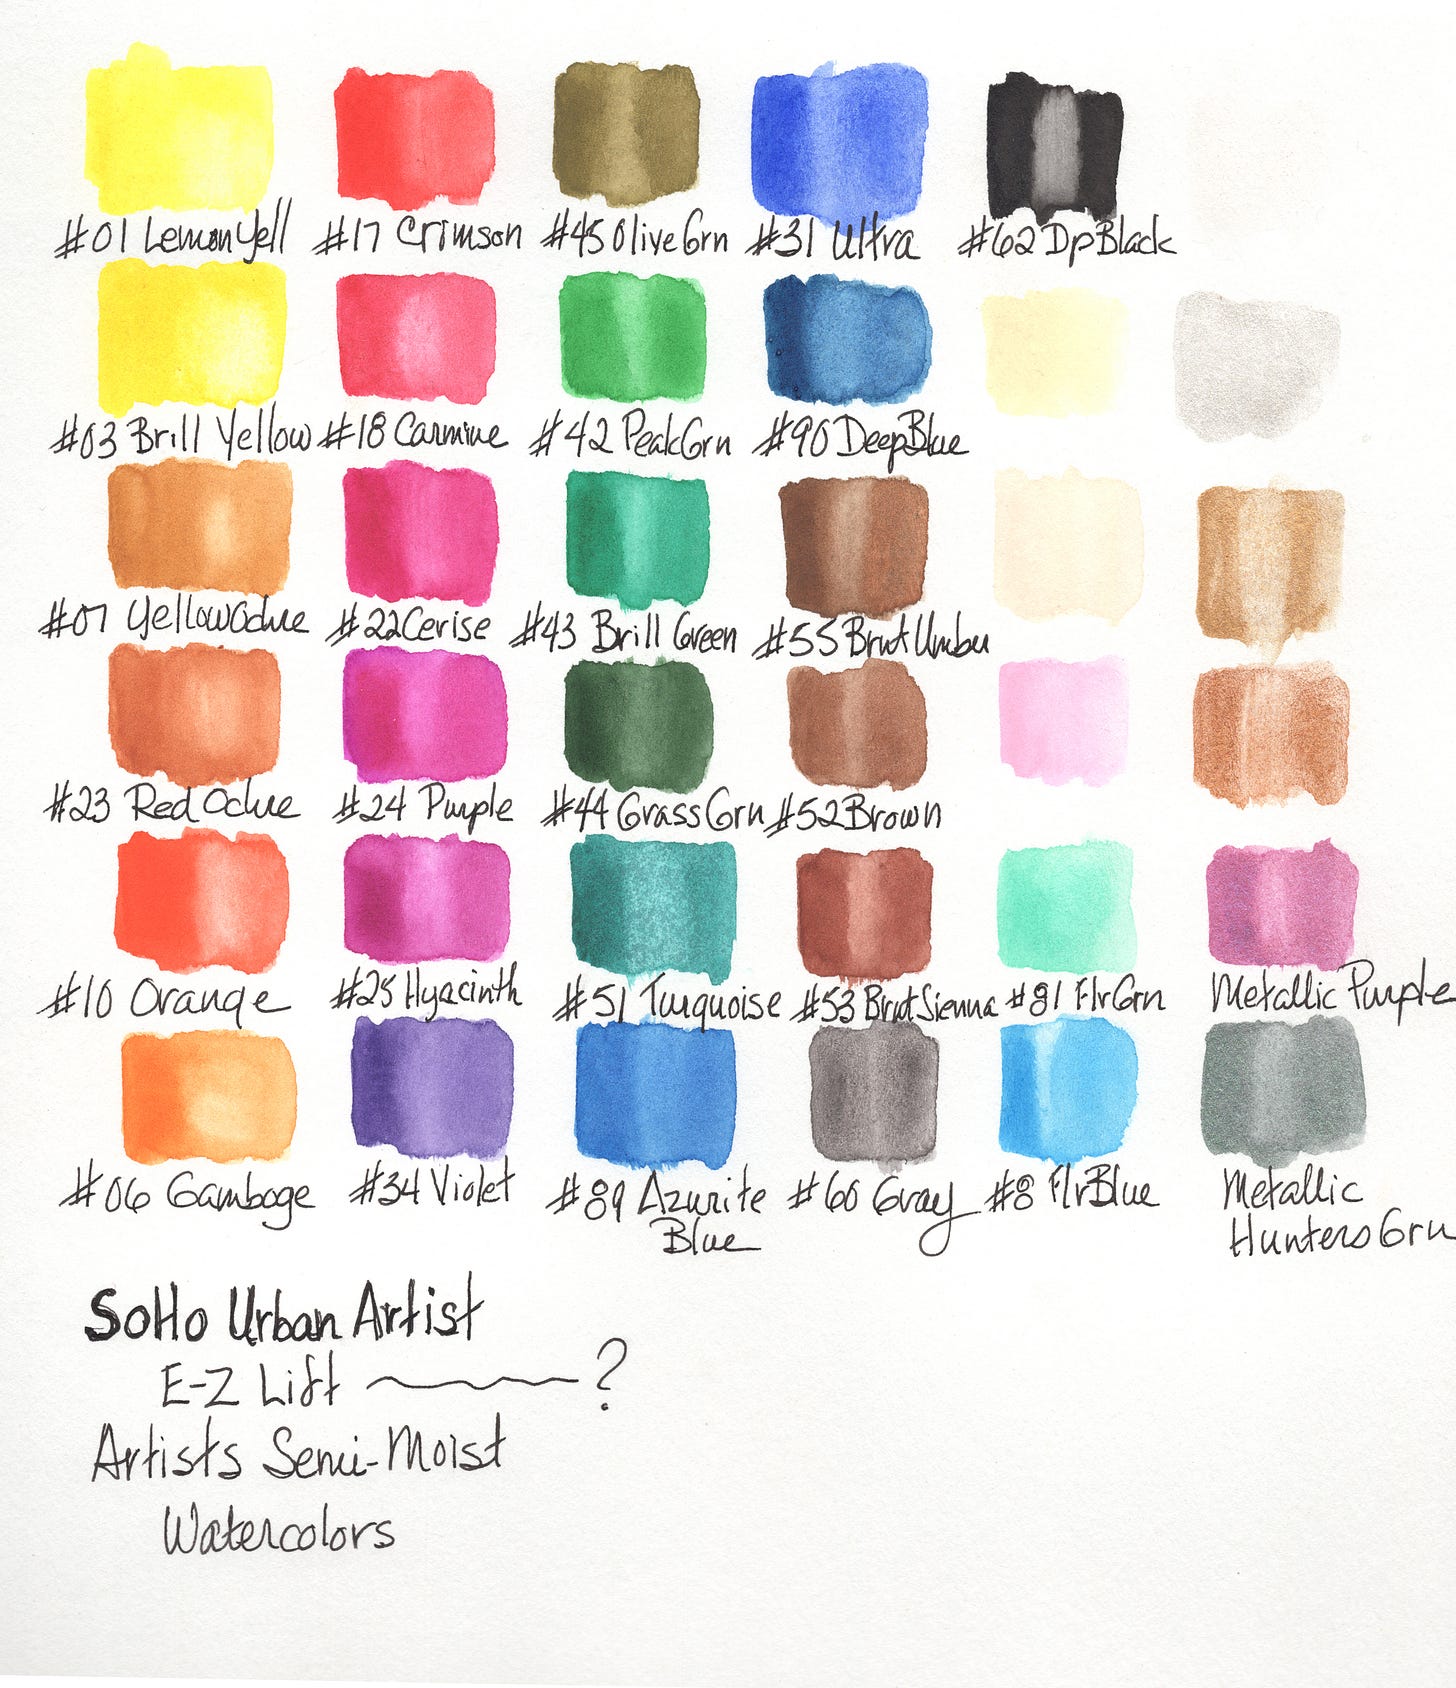 #01 Lemon Yell #17 Crimson #45 Olive Grn #31 Ultra #62 Dp Black
#03 Brill Yellow #18 Carmine #42 PeakGrn #90 Deep Blue
#07 Yellow Ochre #22 Cerise #43 Brill Green #55 Brnt Umber
#23 Red Ochre #24 Purple #44 Grass Grn #52 Brown
#10 Orange #25 Hyacinth #51 Turquoise #53 Brnt Sienna #81 Flr Grn Metallic Purple
#06 Gamboge #34 Violet #89 Azurite #60 Gray #8 Flr Blue Metallic
Blue Hunters Grn
SoHo Urban Artist
E-Z Lift ?
Artists Semi-Moist
Watercolors